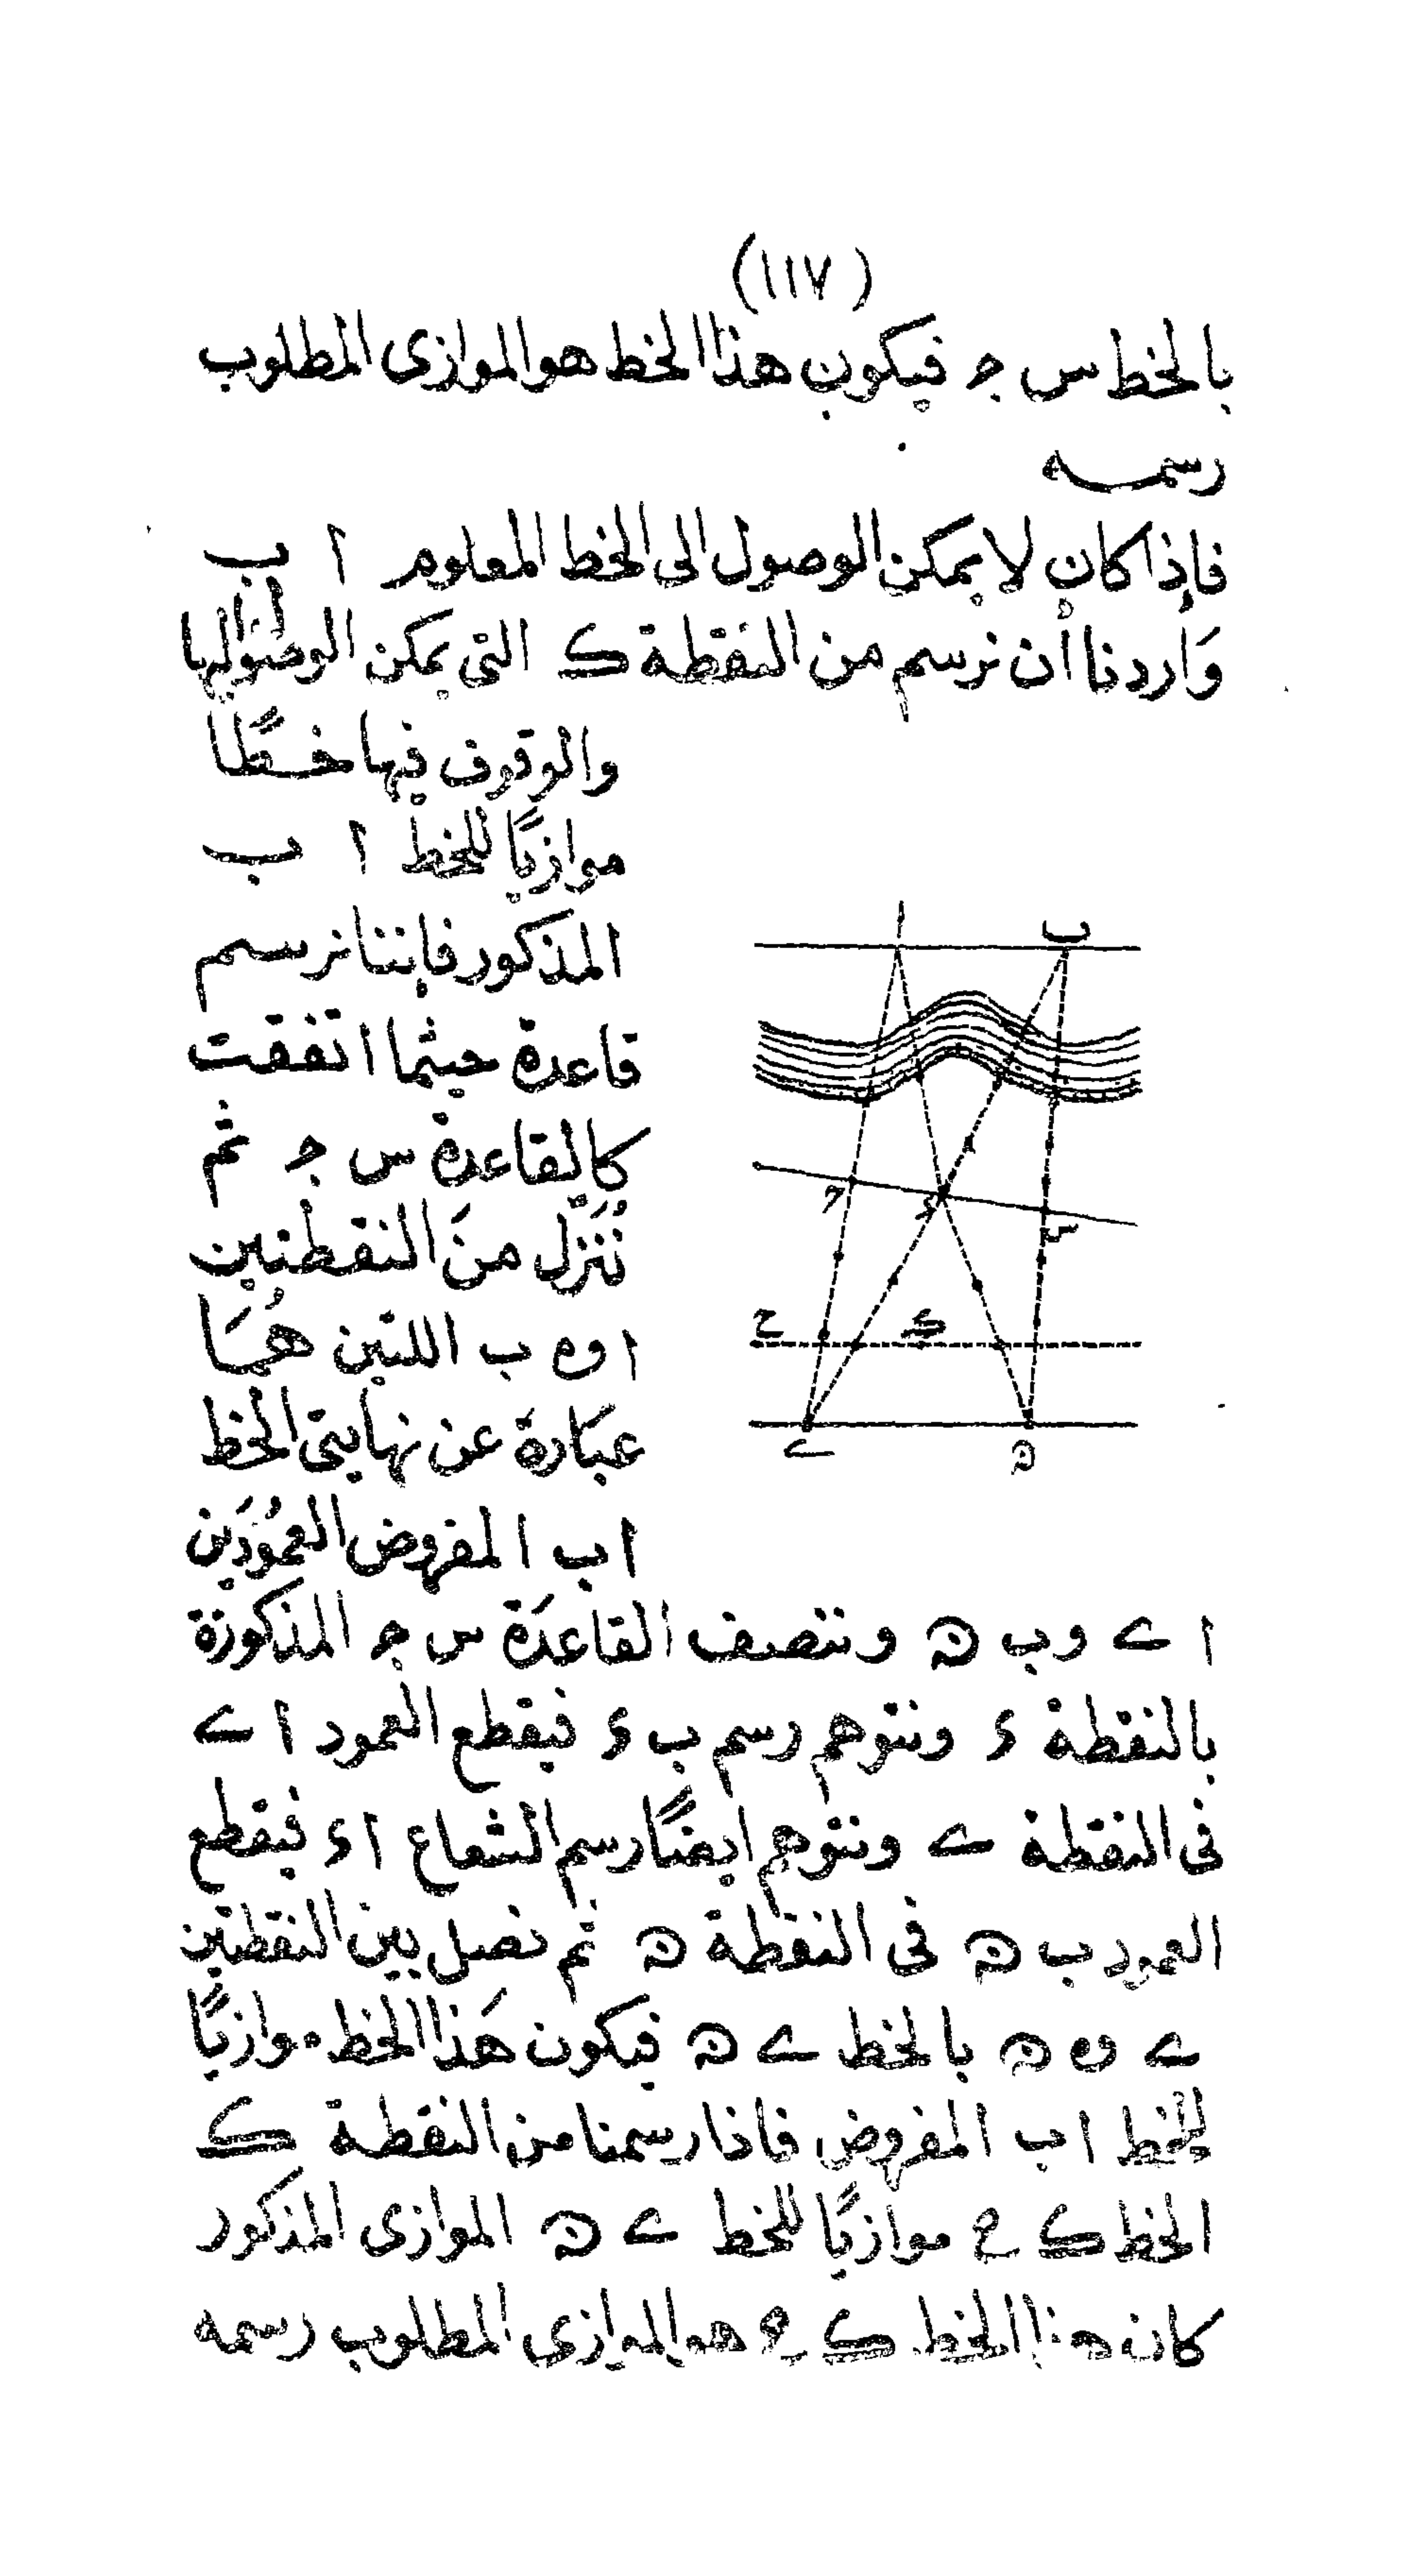 (١١٧)
بالخط س ج فيكون هذا الخط هو الموازى المطلوب
رسمه
فإذا كان لا يمكن الوصول الى الخط المعلوم ا ب
وَاردنا أن نرسم من النقطة ك التى يمكن الوصول اليها
والوقوف فيها خطًّا
موازيًا للخط ا ب
المذكور فإننا نرسم
قاعدة حيثما اتفقت
كالقاعدة س ج ثم
نُنَزل منَ النقطتين
ا و ه ب اللتين هُمَا
عبَارة عن نهايتى الخط
اب المفروض العمُودَين
ا ے وب ن وننصف القاعدَة س ج المذكورة
بالنقطة ء ونتوهم رسم ب ء فيقطع العمود ا ے
فى النقطة ے ونتوهم ايضًا رسم الشعاع ا ء فيقطع
العمود ب ن فى النقطة ن ثم نصل بين النقطتين
ے و ن بالخط ے ن فيكون هَذا الخط موازيًا
للخط اب المفروض فاذا رسمنا من النقطة ك
الخط ك ح موازيًا للخط ے ن الموازى المذكور
كان هذا الخط ك ح هو الموازى المطلوب رسمه
ا ب
ج ء س
ح ك
ے ن